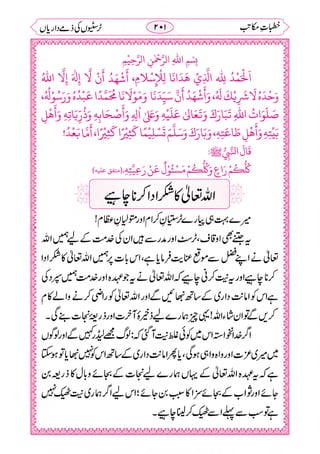 خطباتِ مکاتب ۲۰۱ ٹرسٹیوں کی ذمے داریاں
بِسْمِ اللهِ الرَّحْمٰنِ الرَّحِيْمِ
اَلْحَمْدُ لِلّٰهِ الَّذِيْ هَدَانَا لِلْاِسْلَامِ، أَشْهَدُ أَنْ لَّا إِلٰهَ إِلَّا اللهُ
وَحْدَهُ لَا شَرِيْكَ لَهُ، وَأَشْهَدُ أَنَّ سَيِّدَنَا وَمَوْلَانَا مُحَمَّدًا عَبْدُهُ وَرَسُوْلُهُ،
صَلَوَاتُ اللهِ تَبَارَكَ وَتَعَالٰى عَلَيْهِ وَعَلٰى اٰلِهِ وَأَصْحَابِهِ وَذُرِّيَّاتِهِ وَأَهْلِ
بَيْتِهِ وَأَهْلِ طَاعَتِهِ، وَبَارَكَ وَسَلَّمَ تَسْلِيْمًا كَثِيْرًا كَثِيْرًا، أَمَّا بَعْدُ!
قَالَ النَّبِيُّ ﷺ:
كُلُّكُمْ رَاعٍ وَكُلُّكُمْ مَسْئُوْلٌ عَنْ رَعِيَّتِهِ. (متفق علیہ)
اللہ تعالیٰ کا شکر ادا کرنا چاہیے
میرے بہت ہی پیارے ٹرسٹیانِ کرام اور متولیانِ عظام!
یہ جتنے بھی اوقاف، ٹرسٹ، اور مدرسے ہیں ان کی خدمت کے لیے ہمیں اللہ
تعالیٰ نے اپنے فضل سے موقع عنایت فرمایا ہے، اس بات پر ہمیں اللہ تعالیٰ کا شکر ادا
کرنا چاہیے اور یہ نیت بھی کرنی چاہیے کہ اللہ تعالیٰ نے یہ جو عہدہ اور خدمت ہمیں سپرد کی
ہے اس کو امانت داری کے ساتھ نبھائیں گے اور اللہ تعالیٰ کو راضی کرنے والے کام
کریں گے تو ان شاء اللہ! یہی چیز ہمارے لیے ذخیرۂ آخرت اور ذریعۂ نجات بنے گی۔
اگر خدانخواستہ اس میں کوئی غلط نیت آگئی کہ: لوگ مجھے لیڈر کہیں گے اور لوگوں
میں میری عزت اور واہ واہ ہوگی، یا پھر امانت داری کے ساتھ اس کو نہیں نبھایا تو ہو سکتا
ہے کہ یہ عہدہ اللہ تعالیٰ کے یہاں ہمارے لیے نجات کے بجائے وبال کا ذریعہ بن
جائے اور ثواب کے بجائے سزا کا سبب بن جائے؛ اس لیے اگر ہماری نیت ٹھیک نہیں
ہے تو سب سے پہلے اسے ٹھیک کر لینا چاہیے۔